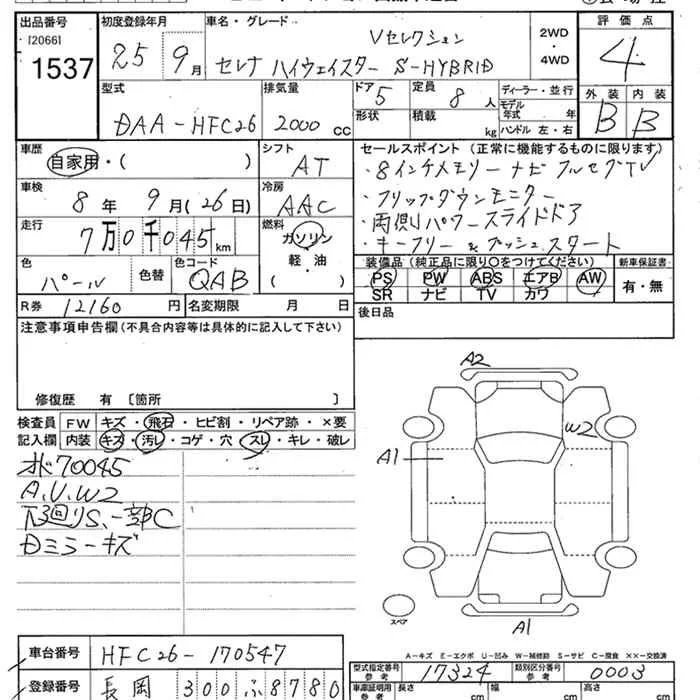 出品番号 初度登録年月 車名・グレード 2WD・4WD 評価点
[2066]
1537
25年 9月
Vセレクション
セレナ ハイウェイスター S-HYBRID
4
型式 排気量 ドア 定員 ディーラー・並行 外装 内装
DAA-HFC26 2000cc 5 8人 モデル年式 年
形状 積載 kg ハンドル 左・右 B B
車歴 自家用・( ) シフト AT
セールスポイント (正常に機能するものに限ります)
・8インチメモリーナビフルセグTV
・フリップダウンモニター
・両側パワースライドドア
・キーフリー&プッシュスタート
車検 8年 9月(26日) 冷房 AAC
走行 7万0千045km 燃料 ガソリン 軽・油 ( )
色 パール 色替 色コード QAB
装備品 (純正品に限り〇をつけてください) 新車保証書
PS PW ABS エアB AW 有・無
SR ナビ TV カワ
R券 12160円 名変期限 月 日
後日品
注意事項申告欄(不具合内容等は具体的に記入して下さい)
修復歴 有 〔箇所 〕
検査員 FW キズ・飛石・ヒビ割・リペア跡・×要
記入欄 内装 キズ・汚レ・コゲ・穴・スレ・キレ・破レ
70045
A.U.W2
下回りS.一部C
Dミラーキズ
A2
W2
A1
スペア
A1
A-キズ E-エクボ U-凹み W-補修跡 S-サビ C-腐食 ××-交換済
車台番号 HFC26-170547
型式指定番号 参考 17324 類別区分番号 参考 0003
登録番号 長岡 300 ふ 8780
車庫証明用 参考 長さ cm 幅 cm 高さ cm